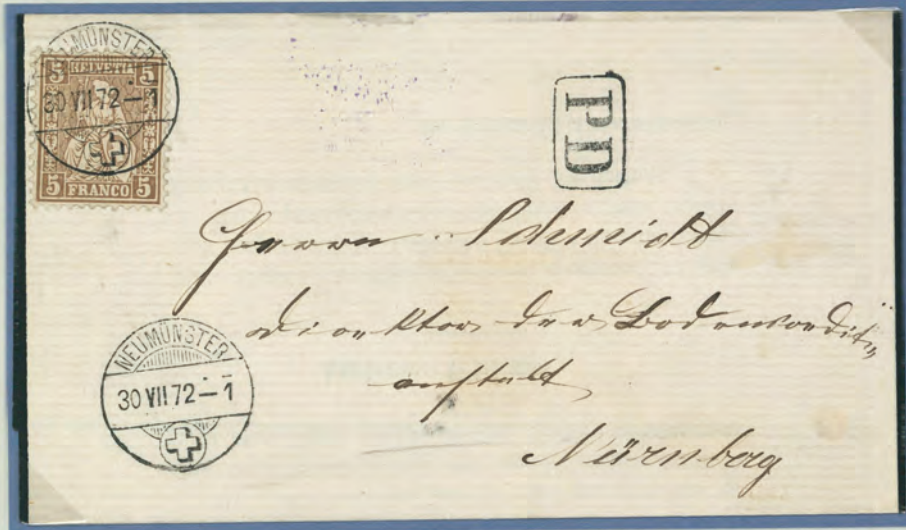 NEUMÜNSTER
5 HELVETIA 5
30 VII 72 – 1
5 FRANCO 5
PD
Herrn Schmidt
Direktor der Bodencredit-
anstalt
Nürnberg
NEUMÜNSTER
30 VII 72 – 1